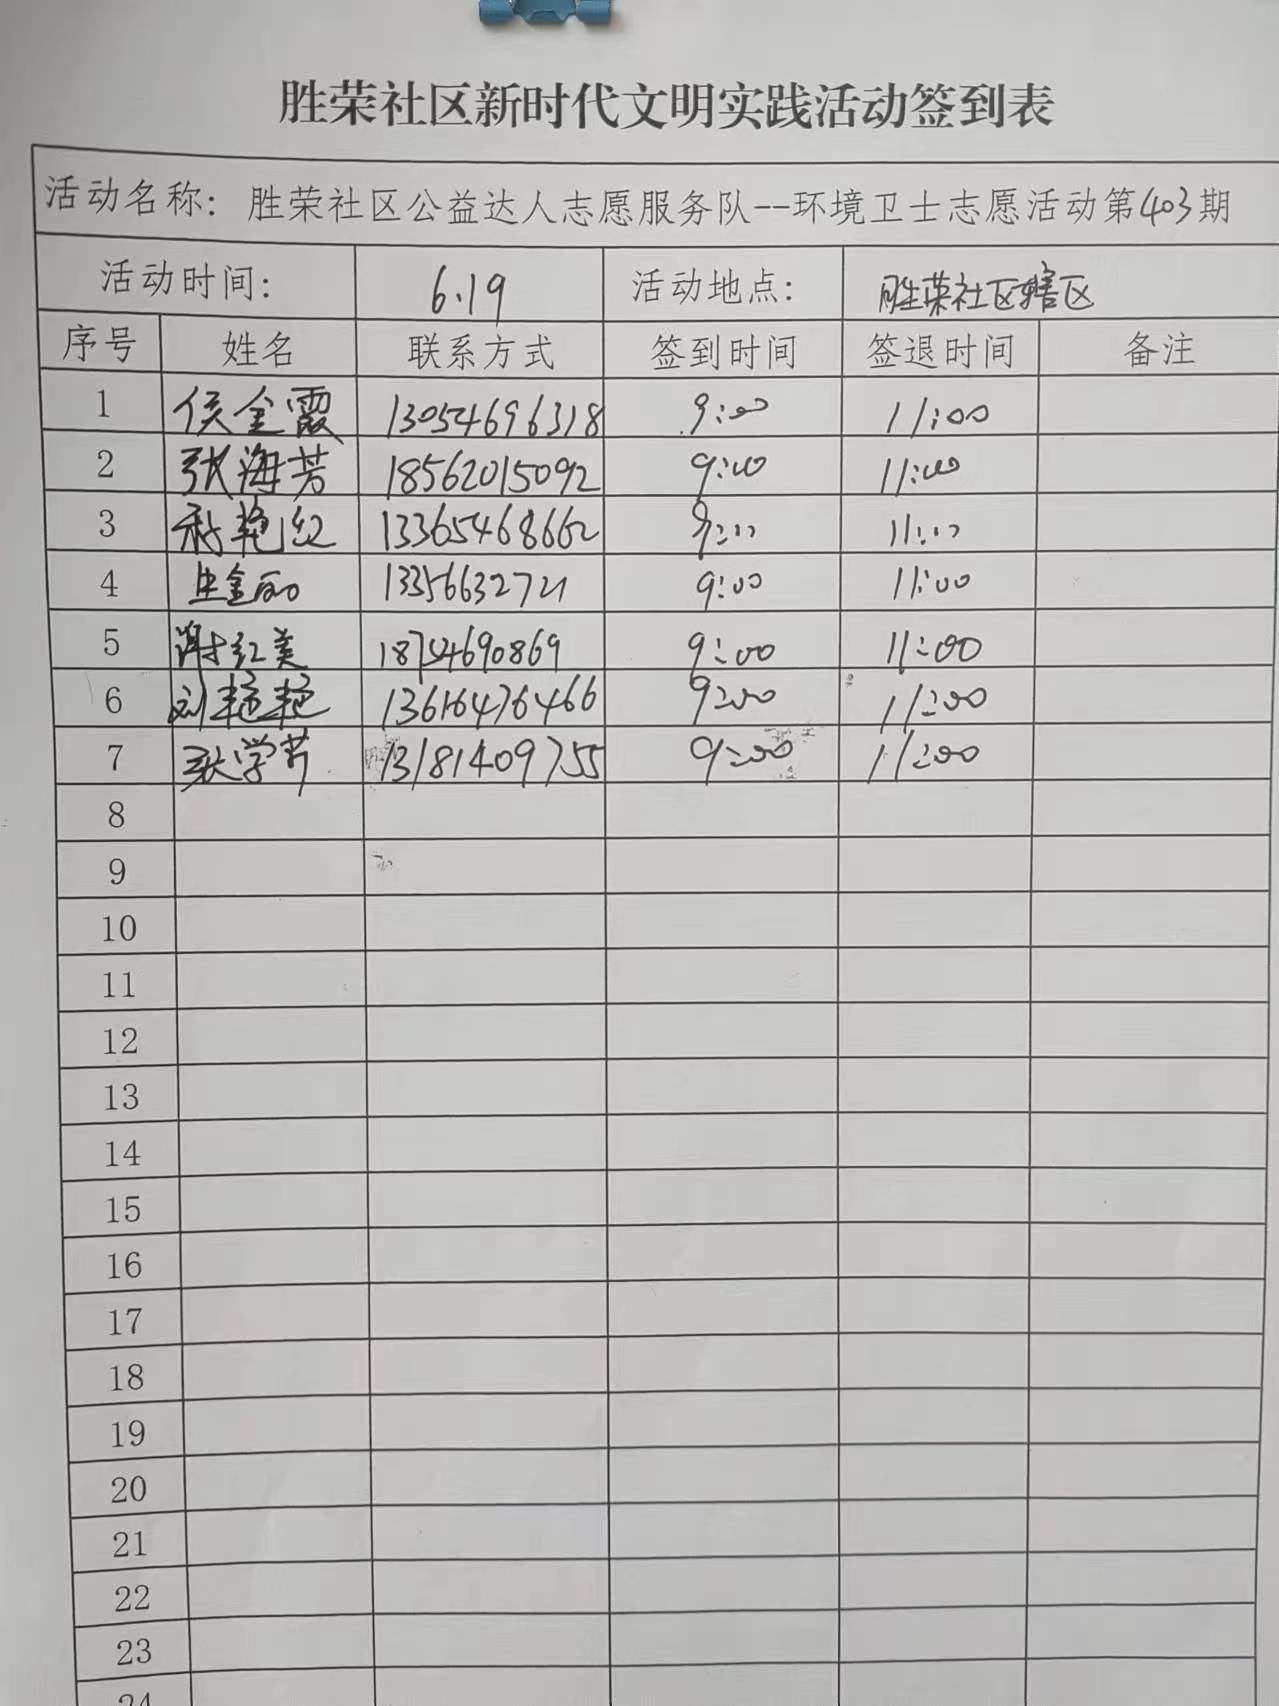 胜荣社区新时代文明实践活动签到表
活动名称：胜荣社区公益达人志愿服务队--环境卫士志愿活动第403期
活动时间： 6.19 活动地点： 胜荣社区辖区
序号 姓名 联系方式 签到时间 签退时间 备注
1 侯金霞 13054696318 9:00 11:00
2 张海芳 18562015092 9:00 11:00
3 艳红 13365468662 9:00 11:00
4 生金丽 13356632721 9:00 11:00
5 谢红美 18754690869 9:00 11:00
6 刘艳艳 13616476466 9:00 11:00
7 张学芹 13181409755 9:00 11:00
8
9
10
11
12
13
14
15
16
17
18
19
20
21
22
23
24